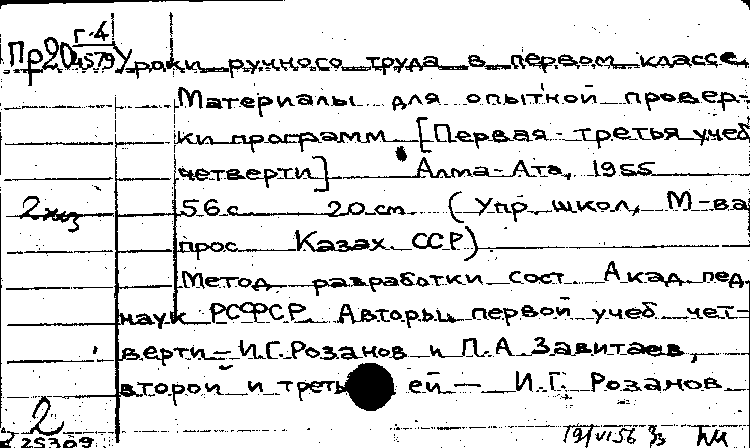 Пр20 Г-4/4579 Уроки ручного труда в первом классе.
Материалы для опытной провер-
ки программ. [Первая - третья учеб
четверти] Алма-Ата, 1955
2 экз 56 с. 20 см. (Упр. школ, М-ва
прос Казах. ССР)
Метод. разработки сост. Акад. пед.
наук РСФСР. Авторы: первой учеб. чет-
верти - И.Г. Розанов и П.А. Завитаев,
второй и третьей — И.Г. Розанов
2
25309 19/VI 56